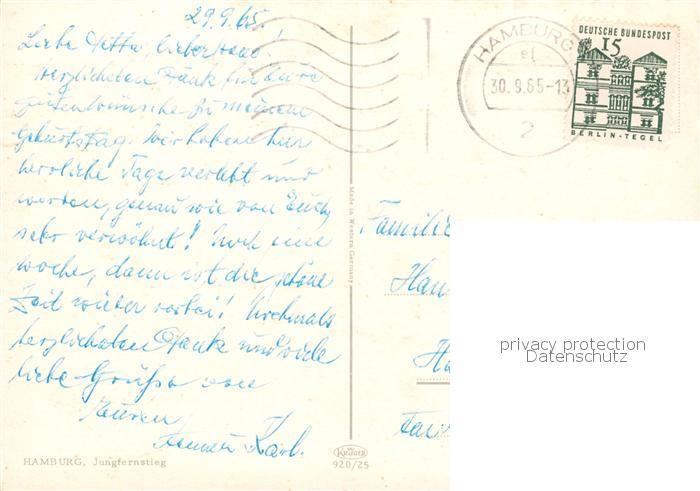 29.9.65.
Liebe Jetta, lieber
herzlichsten Dank für Eure
guten Wünsche zu meinem
Geburtstag. Wir haben hier
herrliche Tage verlebt und
werden, genau wie von Euch,
sehr verwöhnt! Noch eine
Woche, dann ist die schöne
Zeit wieder vorbei! Nochmals
herzlichsten Dank und viele
liebe Grüße von
Euren
Karl.
HAMBURG, Jungfernstieg
Made in Western Germany
Krüger
920/25
HAMBURG
30.9.65-13
2
DEUTSCHE BUNDESPOST
15
BERLIN-TEGEL
Familie
privacy protection
Datenschutz